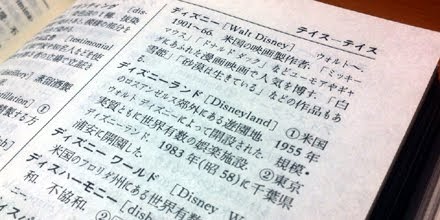 テイス−テイス
ディズニー [Walt Disney] ウォルト〜.
1901〜66. 米国の映画製作者. 「ミッキー
マウス」「ドナルド ダック」などユーモアやギャ
グにあふれる漫画映画で人気を博す. 「白
雪姫」「砂漠は生きている」などの作品もある
ディズニーランド [Disneyland] ①米国
のロスアンゼルス郊外にある遊園地. 1955年
ウォルト ディズニーによって開設された. 規模・
実質ともに世界有数の娯楽施設. ②東京
ディズニーランド. 1983年(昭58)に千葉県
浦安に開園した.
ディズニー ワールド [Disney W
米国のフロリダ州にある世界有
ディスハーモニー [dish
和. 不協和. ②
[dis-
testimonial
する方